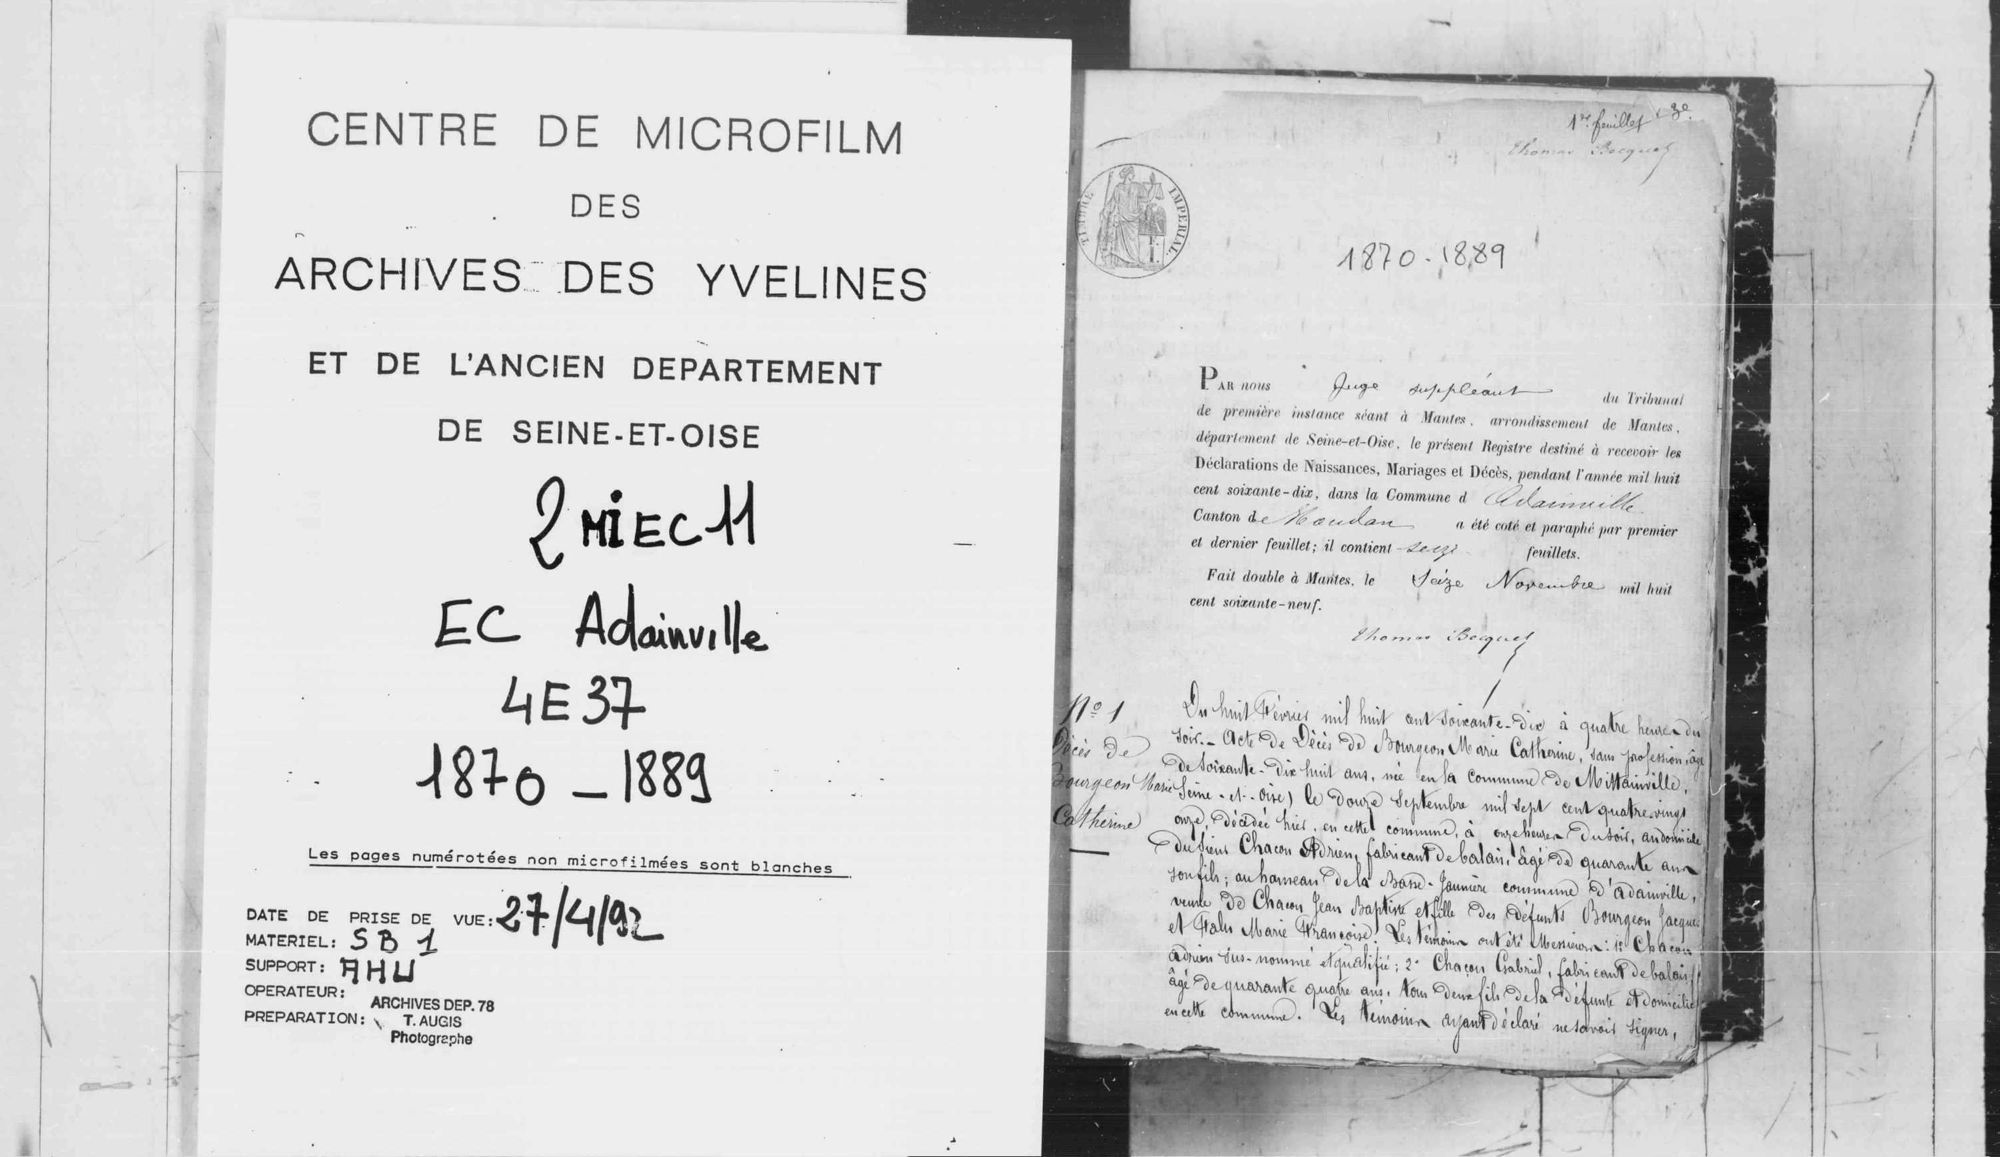 CENTRE DE MICROFILM
DES
ARCHIVES DES YVELINES
ET DE L'ANCIEN DEPARTEMENT
DE SEINE-ET-OISE
2 MI EC 11
EC Adainville
4E37
1870 _ 1889
Les pages numérotées non microfilmées sont blanches
DATE DE PRISE DE VUE: 27/4/92
MATERIEL: SB 1
SUPPORT: AHU
OPERATEUR: ARCHIVES DEP. 78
PREPARATION: T. AUGIS
Photographe
1er feuillet
Thomas Bocquet
TIMBRE IMPERIAL
1870-1889
PAR nous Juge suppléant du Tribunal
de première instance séant à Mantes, arrondissement de Mantes,
département de Seine-et-Oise, le présent Registre destiné à recevoir les
Déclarations de Naissances, Mariages et Décès, pendant l'année mil huit
cent soixante-dix, dans la Commune d Adainville
Canton de Houdan a été coté et paraphé par premier
et dernier feuillet; il contient seize feuillets.
Fait double à Mantes, le Seize Novembre mil huit
cent soixante-neuf.
Thomas Bocquet
No 1
Décès de
Bourgeon Marie
Catherine
Du huit Février mil huit cent soixante-dix à quatre heures du
soir. - Acte de Décès de Bourgeon Marie Catherine, sans profession, âgé
de soixante-dix huit ans, née en la commune de Mittainville,
Seine-et-Oise) le douze Septembre mil sept cent quatre-vingt
onze, décédée hier, en cette commune, à onze heures du soir, au domicile
du sieur Chacon Adrien, fabricant de balais, âgé de quarante ans
son fils; au hameau de la Basse-Jaunière commune d'Adainville,
veuve de Chacon Jean Baptiste et fille des défunts Bourgeon Jacques
et Marie Françoise. Les témoins ont été Messieurs: 1o Chacon
Adrien sus-nommé et qualifié; 2o Chacon Gabriel, fabricant de balais,
âgé de quarante quatre ans, tous deux fils de la défunte et domiciliés
en cette commune. Les témoins ayant déclaré ne savoir signer,